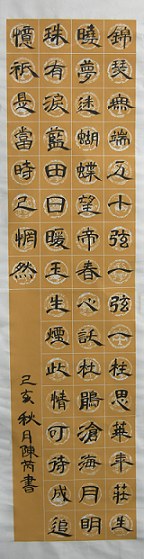 錦瑟無端五十弦一弦一柱思華年莊生
曉夢迷蝴蝶望帝春心託杜鵑滄海月明
珠有淚藍田日暖玉生煙此情可待成追
憶祇是當時已惘然
己亥秋月陳芮書